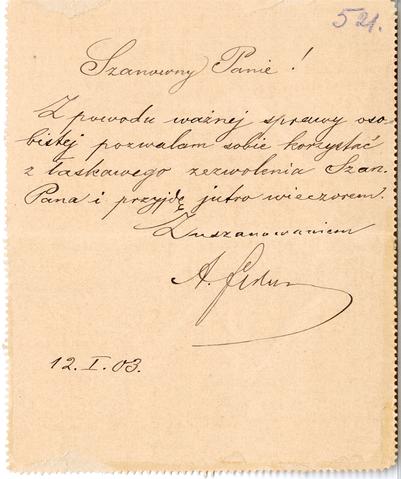 521.
Szanowny Panie!
Z powodu ważnej sprawy oso
bistej pozwalam sobie korzystać
z łaskawego zezwolenia Szan.
Pana i przyjdę jutro wieczorem.
Z uszanowaniem
A.
12. I. 03.